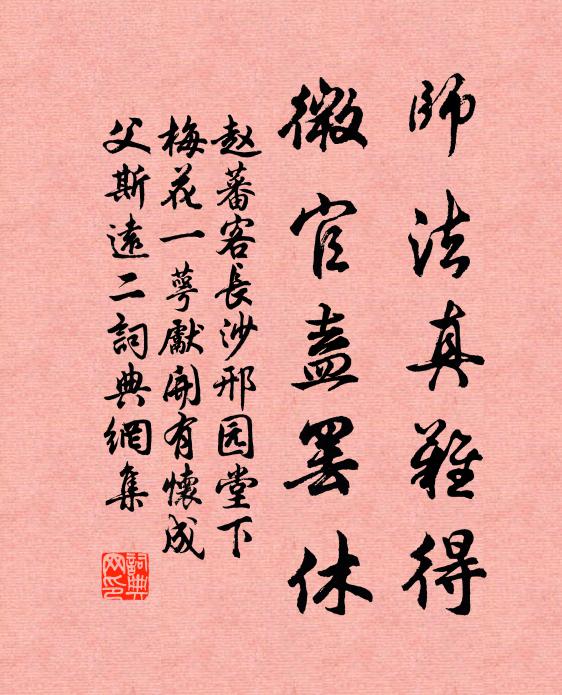 師法真難得
微官盍罷休
赵蕃客長沙邢园堂下
梅花一萼獻開有懷成
父斯遠二詞典網集
詞典網印